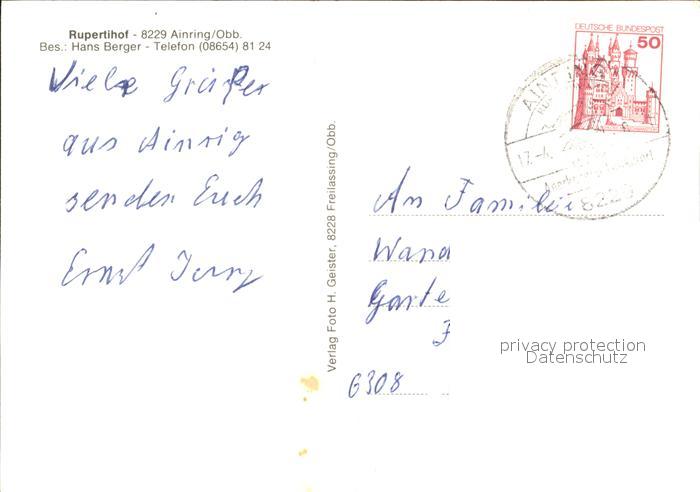 Rupertihof - 8229 Ainring/Obb.
Bes.: Hans Berger - Telefon (08654) 81 24
Viele Grüße
aus Ainrig
senden Euch
Ernst
Verlag Foto H. Geister, 8228 Freilassing/Obb.
DEUTSCHE BUNDESPOST
50
17.-4.
8229
An Familie
Wand
Garte
6308
privacy protection
Datenschutz